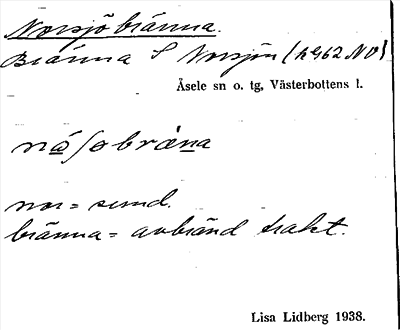 Norsjöbränna.
Bränna S Norsjön (h 962 NO)
Åsele sn o. tg, Västerbottens l.
nor = sund.
bränna = avbränd trakt.
Lisa Lidberg 1938.